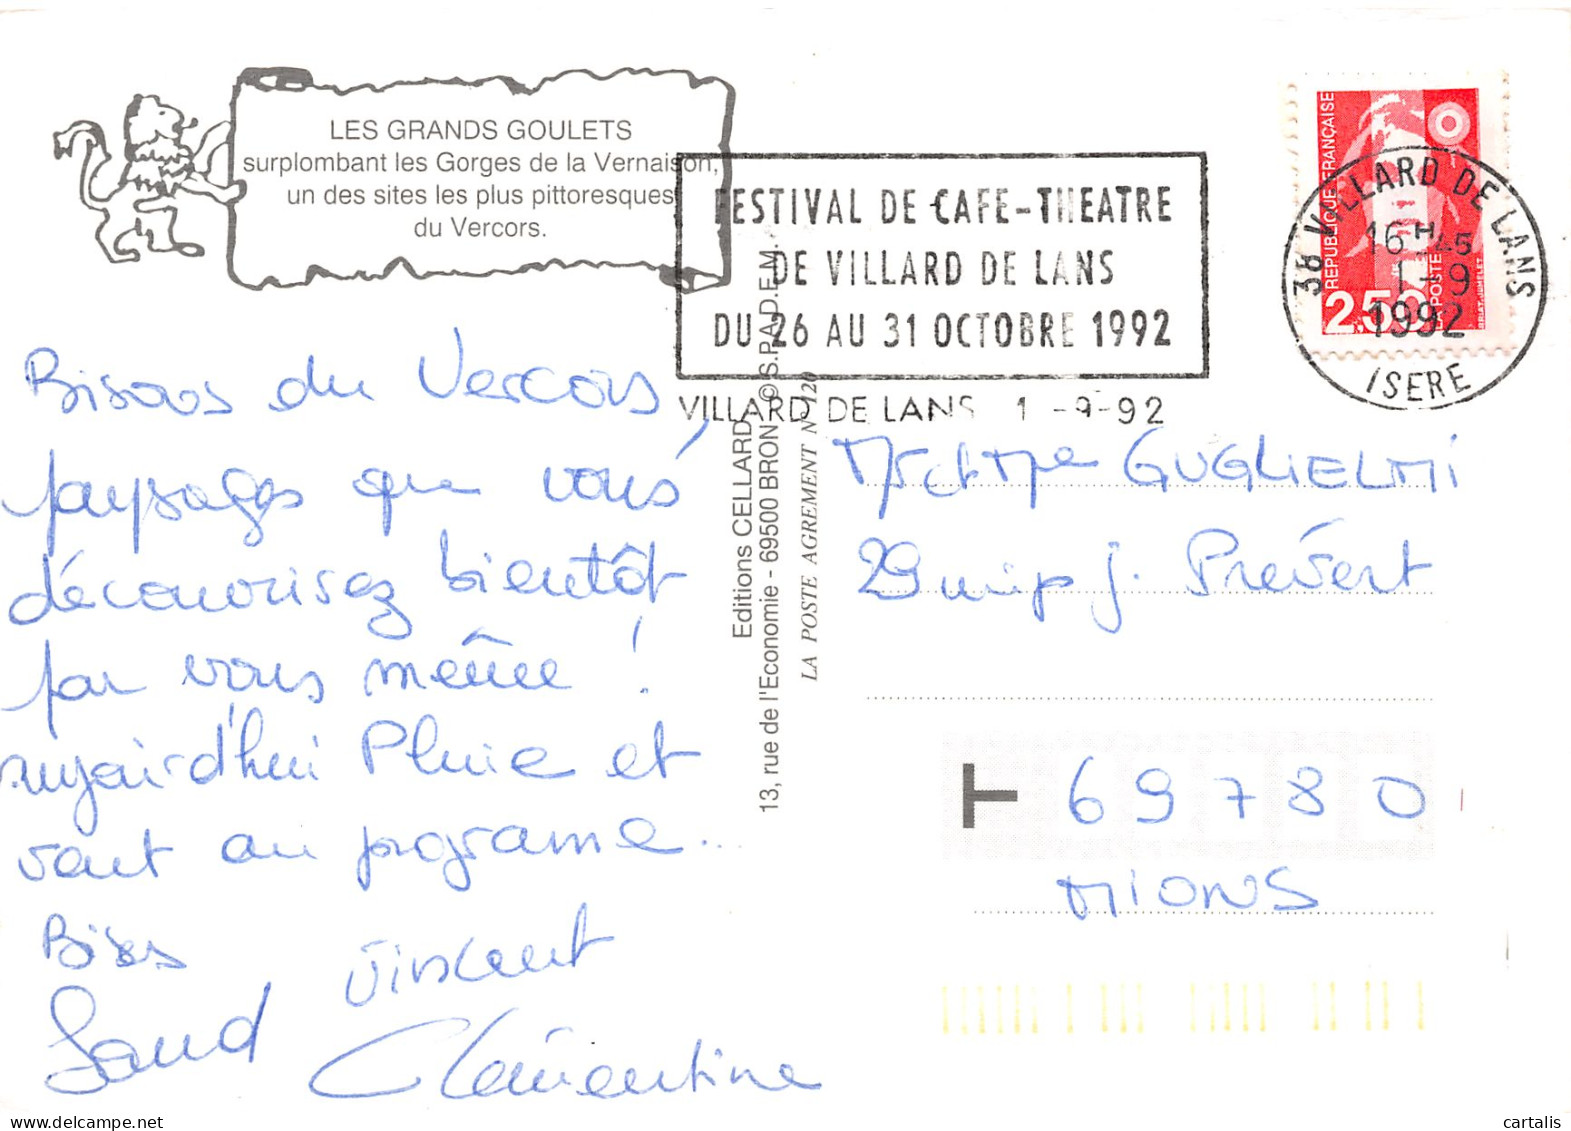 LES GRANDS GOULETS
surplombant les Gorges de la Vernaison,
un des sites les plus pittoresques
du Vercors.
FESTIVAL DE CAFE-THEATRE
DE VILLARD DE LANS
DU 26 AU 31 OCTOBRE 1992
VILLARD DE LANS 1 -9-92
REPUBLIQUE FRANÇAISE
2,50
LA POSTE
38 VILLARD DE LANS
16 H 45
1 - 9
1992
ISERE
Bisous du Vercors
paysages que vous
découvrirez bientôt
par vous même !
aujourd'hui Pluie et
vent au programe...
Bises
Vincent
Clémentine
Editions CELLARD
13, rue de l'Economie - 69500 BRON © S.P.A.D.E.M.
LA POSTE AGREMENT N° 120
Mr et Mme GUGLIELMI
29 J. Prévert
69780
MIONS
cartalis